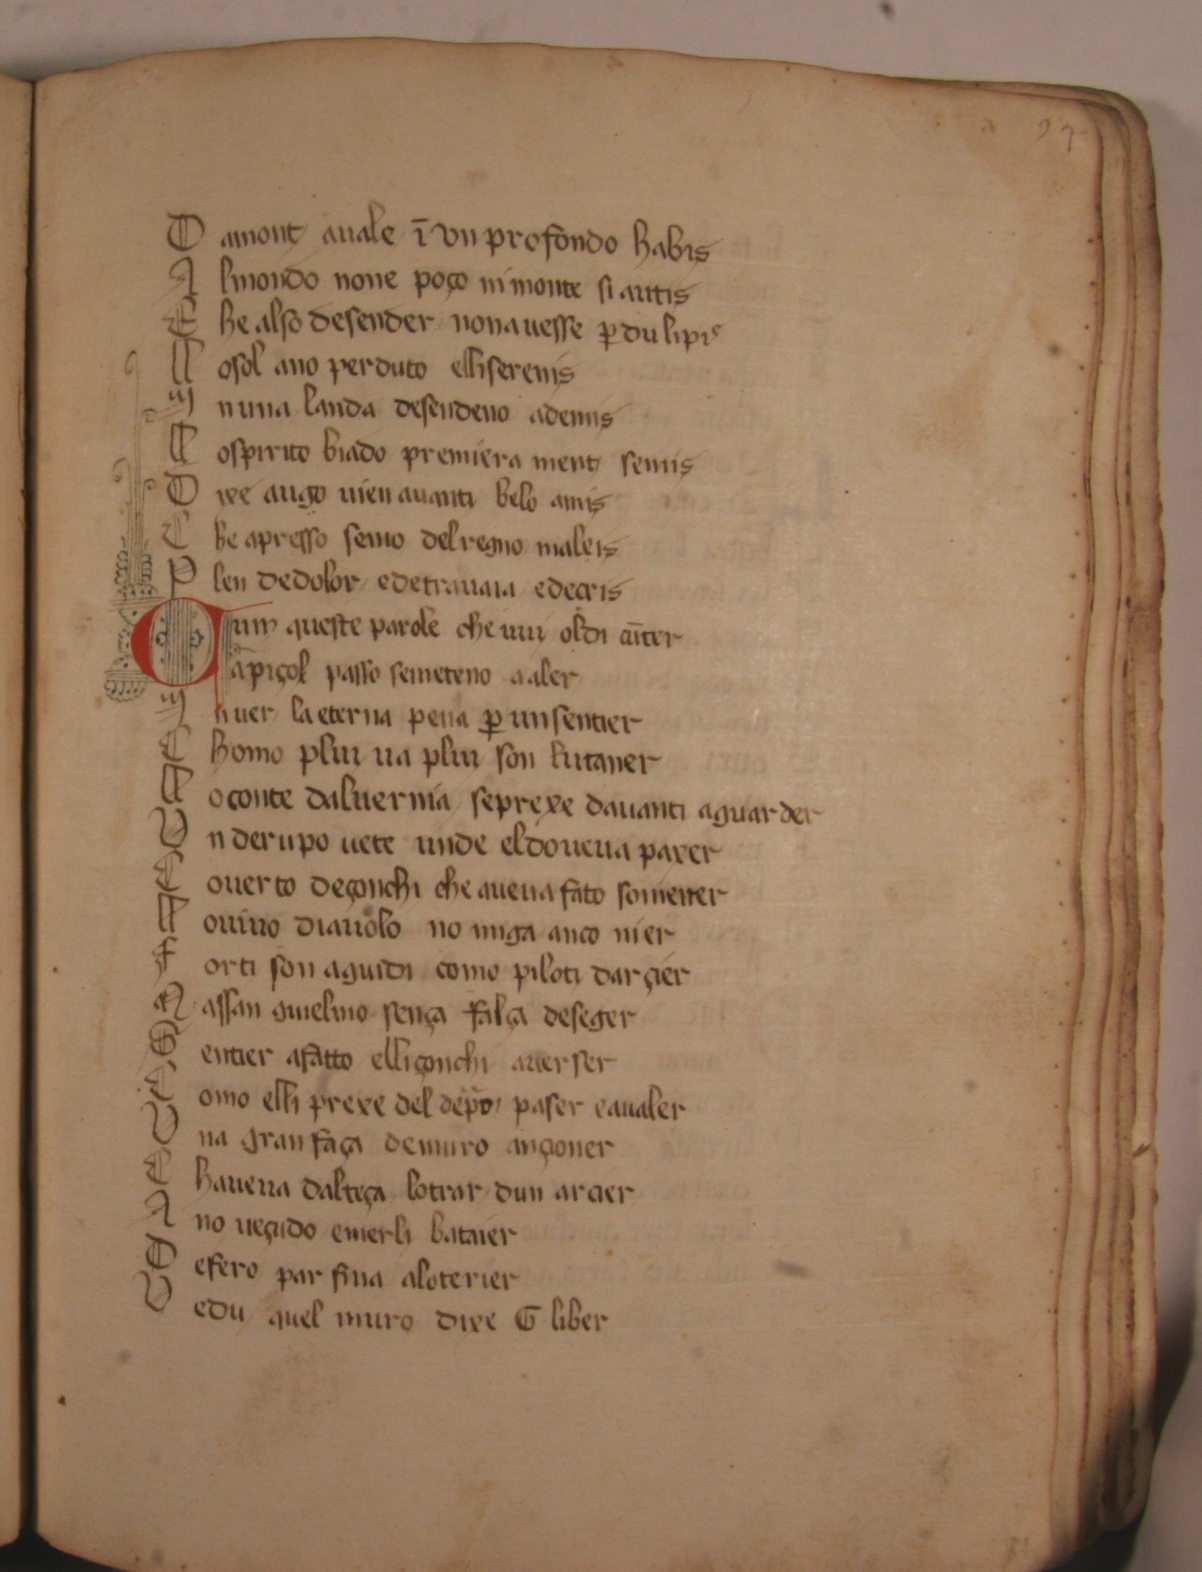 97
D amont auale ī vn profondo habis
A lmondo none poço ni monte si autis
C he also desender non auesse ꝑdu lipis
L osol ano perduto elli serenis
I n una landa desendeno ademis
L ospirito biado premiera ment semis
D ixe augo uien auanti belo amis
C he apresso semo del regno maleis
P len dedolor edetrauaia edecris
Cum queste parole che uui oldi cūter
apiçol passo semeteno a aler
I n uer la eterna pena ꝑ un sentier
C homo plui ua plui son lutaner
L o conte daluernia seprexe dauanti aguarder
V n derupo uete unde el doueua paxer
C ouerto deçonchi che aueua fato somener
L ouiuo diauolo no miga anco nier
F orti son aguidi como piloti darçier
N assan guielmo sença falça deseger
S entier afatto elli çonchi auerser
C omo elli prexe del paser eaualer
V na gran faça demuro ançoner
C haueua dalteça lotrar dun arcier
A no ueçudo emerli bataier
D efero par fina aloterier
V edu quel muro dixe G liber